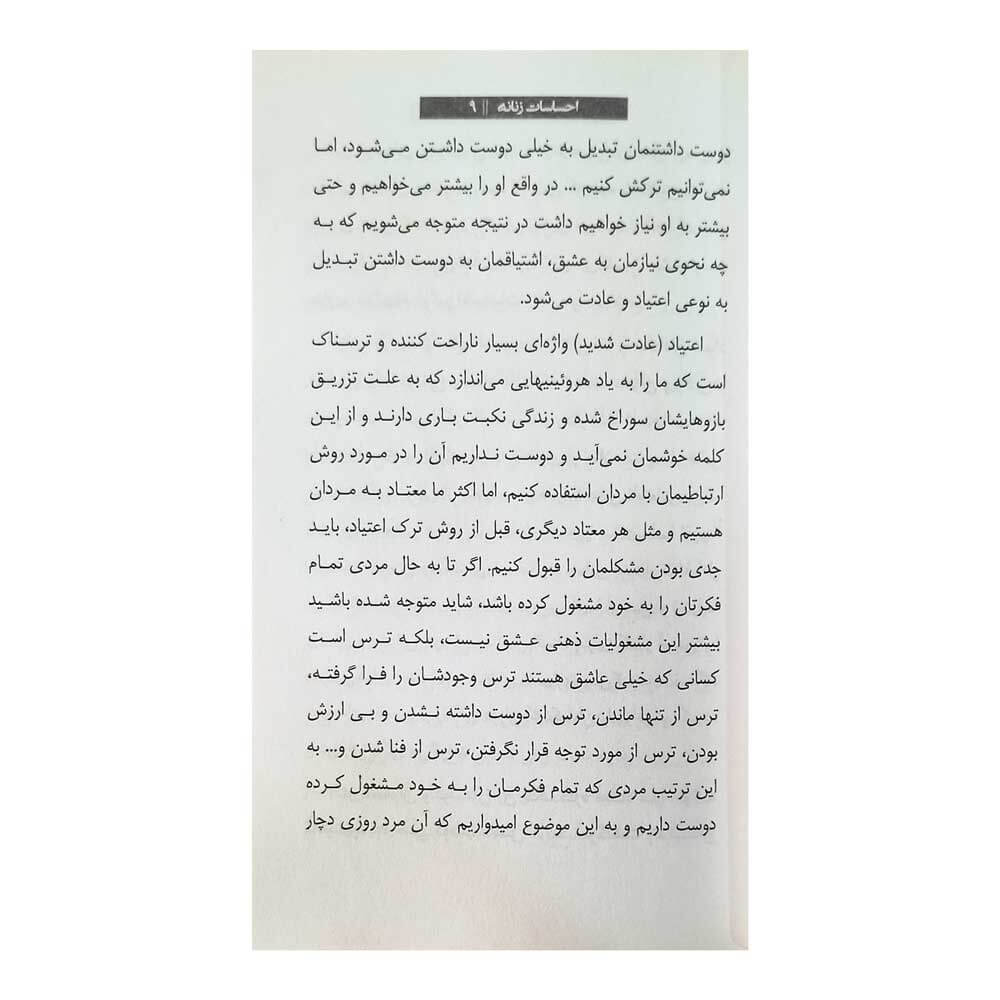 احساسات زنانه || ۹
دوست داشتنمان تبدیل به خیلی دوست داشتن می‌شود، اما
نمی‌توانیم ترکش کنیم ... در واقع او را بیشتر می‌خواهیم و حتی
بیشتر به او نیاز خواهیم داشت در نتیجه متوجه می‌شویم که به
چه نحوی نیازمان به عشق، اشتیاقمان به دوست داشتن تبدیل
به نوعی اعتیاد و عادت می‌شود.
اعتیاد (عادت شدید) واژه‌ای بسیار ناراحت کننده و ترسناک
است که ما را به یاد هروئینیهایی می‌اندازد که به علت تزریق
بازوهایشان سوراخ شده و زندگی نکبت باری دارند و از این
کلمه خوشمان نمی‌آید و دوست نداریم آن را در مورد روش
ارتباطیمان با مردان استفاده کنیم، اما اکثر ما معتاد به مردان
هستیم و مثل هر معتاد دیگری، قبل از روش ترک اعتیاد، باید
جدی بودن مشکلمان را قبول کنیم. اگر تا به حال مردی تمام
فکرتان را به خود مشغول کرده باشد، شاید متوجه شده باشید
بیشتر این مشغولیات ذهنی عشق نیست، بلکه ترس است
کسانی که خیلی عاشق هستند ترس وجودشان را فرا گرفته،
ترس از تنها ماندن، ترس از دوست داشته نشدن و بی ارزش
بودن، ترس از مورد توجه قرار نگرفتن، ترس از فنا شدن و... به
این ترتیب مردی که تمام فکرمان را به خود مشغول کرده
دوست داریم و به این موضوع امیدواریم که آن مرد روزی دچار